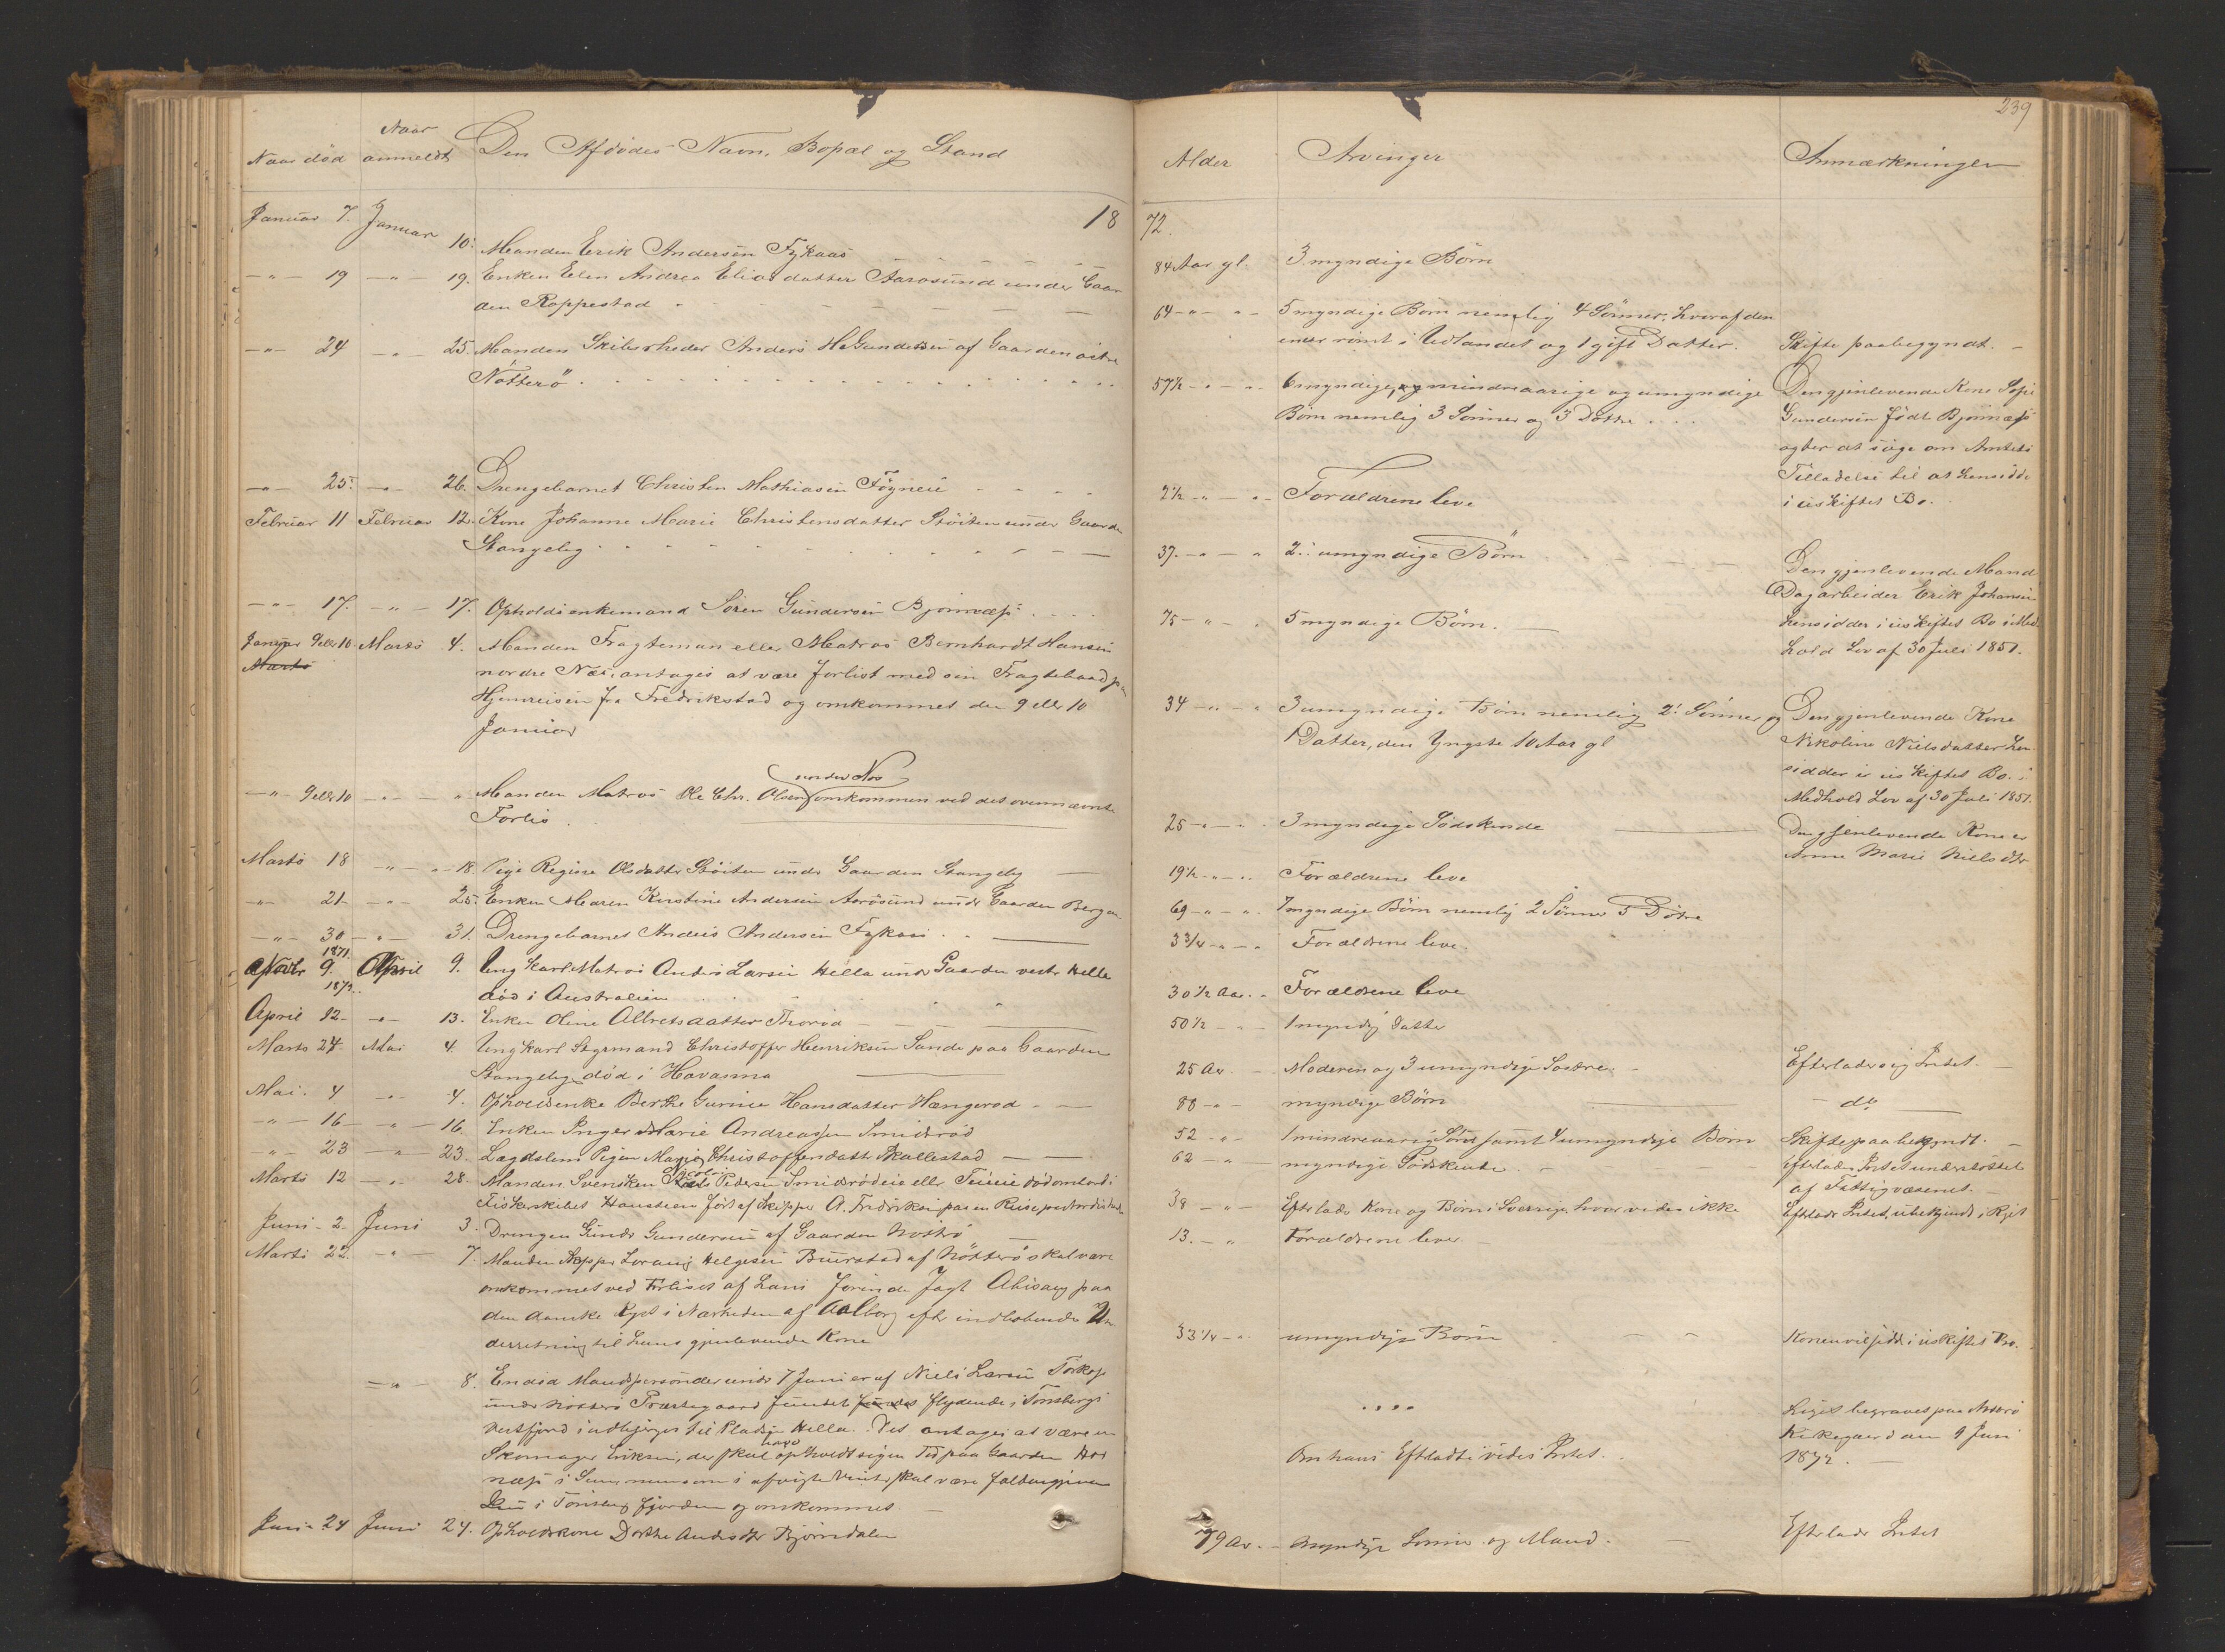 Naar død
Naar
anmeldt
Den Afdødes Navn, Bopæl og Stand
18
Januar 7. Januar 10. Manden Erik Andersen Fykaas
-"- 19 -"- 19. Enken Elen Andrea Eliasdatter Aarøsund under Gaar
den Roppestad
-"- 24 -"- 25. Manden Skibsrheder Anders H. Gundersen af Gaarden
Nøtterö
-"- 25. -"- 26. Drengebarnet Christen Mathiasen Föyneie
Februar 11 Februar 12. Kone Johanne Marie Christensdatter Stöiten under Gaarden
Stangeby
-"- 17. -"- 17. Opholdsenkemand Sören Gundersen Bjönnæss
Januar 9 eller 10. Marts 4. Manden Fragteman eller Matros Bernhardt Hansen
Marts
nordre Næs, antages at være forlist med sin Fragtebaad paa
Hjemreisen fra Fredrikstad og omkommet den 9 eller 10
Januar
-"- 9 eller 10 -"- " Manden Matros Ole Chr. Olsen nordre Næs omkommen ved det ovennævnte
Forlis
Marts 18 -"- 18. Pige Regine Olsdatter Stöiten under Gaarden Stangeby
-"- 21 -"- 25. Enken Maren Kirstine Andersen Aarösund under Gaarden Bergan
-"- 30 -"- 31. Drengebarnet Anders Andersen Fykaas
1871.
Novbr 9. April 9. Ungkarl Matros Anders Larsen Hella under Gaarden vestre Hella
1872.
död i Australien
April 12. -"- 13. Enken Oline Albretsdatter Thoröd
Marts 24 Mai 4. Ungkarl Styrmand Christoffer Henriksen Sande paa Gaarden
Stangeby död i Havanna
Mai. 4 -"- 4. Opholdsenke Berthe Gurine Hansdatter Hængeröd
-"- 16 -"- 16. Enken Inger Marie Andreassen Smideröd
-"- 23 -"- 23. Lægdslem Pigen Maria Christoffersdatter Skallestad
Marts 12 -"- 28. Manden Svensken Pedersen Smideröd eie eller Teieie död ombord i
Fiskerskibet Haustein fört af Skipper A. Fredriksen paa en Reise
Juni 2. Juni 3. Drengen Gunder Gundersen af Gaarden Nötterö
Marts 22. -"- 7. Manden Skipper Lorang Helgesen Buerstad af Nötterö skal være
omkommet ved Forliset af hans förende Jagt paa
den danske Kyst i Nærheden af Aalborg efter indlöbende Un
derretning til hans gjenlevende Kone
-"- 8. En död Mandsperson der under 7 Juni er af Niels Larsen Torkop
under Nötterö Præstegaard fundet flydende i Tönsbergs
Vestfjord indbjerget til Pladsen Hella. Det antages at være en
Skomager Eriksen, der skal have opholdt sig en Tid paa Gaarden
næss i Sem, men som i afvigte Vinter skal være falden gjennem
Isen i Tönsbergfjorden og omkommet.
Juni 24 Juni 24. Opholdskone Dorthe Andersdtr Bjørndalen
239
Alder
Arvinger
Anmærkninger
72.
84 Aar gl. 3 myndige Börn
64 -"- 5 myndige Börn nemlig 4 Sönner, hvoraf den
ene römt i Udlandet og 1 gift Datter. Skifte paabegyndt.
57½ -"- 6 myndige, mindreaarige og umyndige
Börn nemlig 3 Sönner og 3 Dötre
Den gjenlevende Kone Sofie
Gundersen födt Bjönnæss
agter at söge om Amtets
Tilladelse til at hensidde
i uskiftet Bo.
2½ -"- Forældrene leve
37. -"- 2 umyndige Börn
Den gjenlevende Mand
Dagarbeider Erik Johansen
hensidder i uskiftet Bo i Med
hold Lov af 30 Juli 1851.
75 -"- 5 myndige Börn.
34 -"- 3 umyndige Börn nemlig 2 Sönner og
1 Datter, den Yngste 10 Aar gl
Den gjenlevende Kone
Nikoline Nielsdatter hen
sidder i uskiftet Bo i
Medhold Lov af 30 Juli 1851.
25 -"- 3 myndige Södskende
Den gjenlevende Kone er
Anne Marie Nielsdtr
19½ -"- Forældrene leve
69 -"- 7 myndige Börn nemlig 2 Sönner 5 Dötre
3¾ -"- Forældrene leve.
30½ Aar. Forældrene leve
50½ -"- 1 myndig Datter
25 Aar Moderen og 3 umyndige Söstre Efterlader sig Intet.
88 -"- myndige Börn do
52 -"- 1 mindreaarig Sön samt 4 umyndige Börn Skifte paabegyndt.
62 -"- myndige Södskende Efterlader Intet understöttet
af Fattigvæsenet.
38 -"- Efterlader Kone og Börn i Sverrige, hvor vides ikke Efterlader Intet, ubekjendt i Riget
13. -"- Forældrene lever
33¼ -"- umyndige Börn Konen vil sidde i uskiftet Bo.
" " " "
Om hans Efterladte vides Intet.
Liget begravet paa Nöterö
Kirkegaard den 9 Juni
1872.
79 Aar. myndige Sönner og Mand. Efterlader Intet